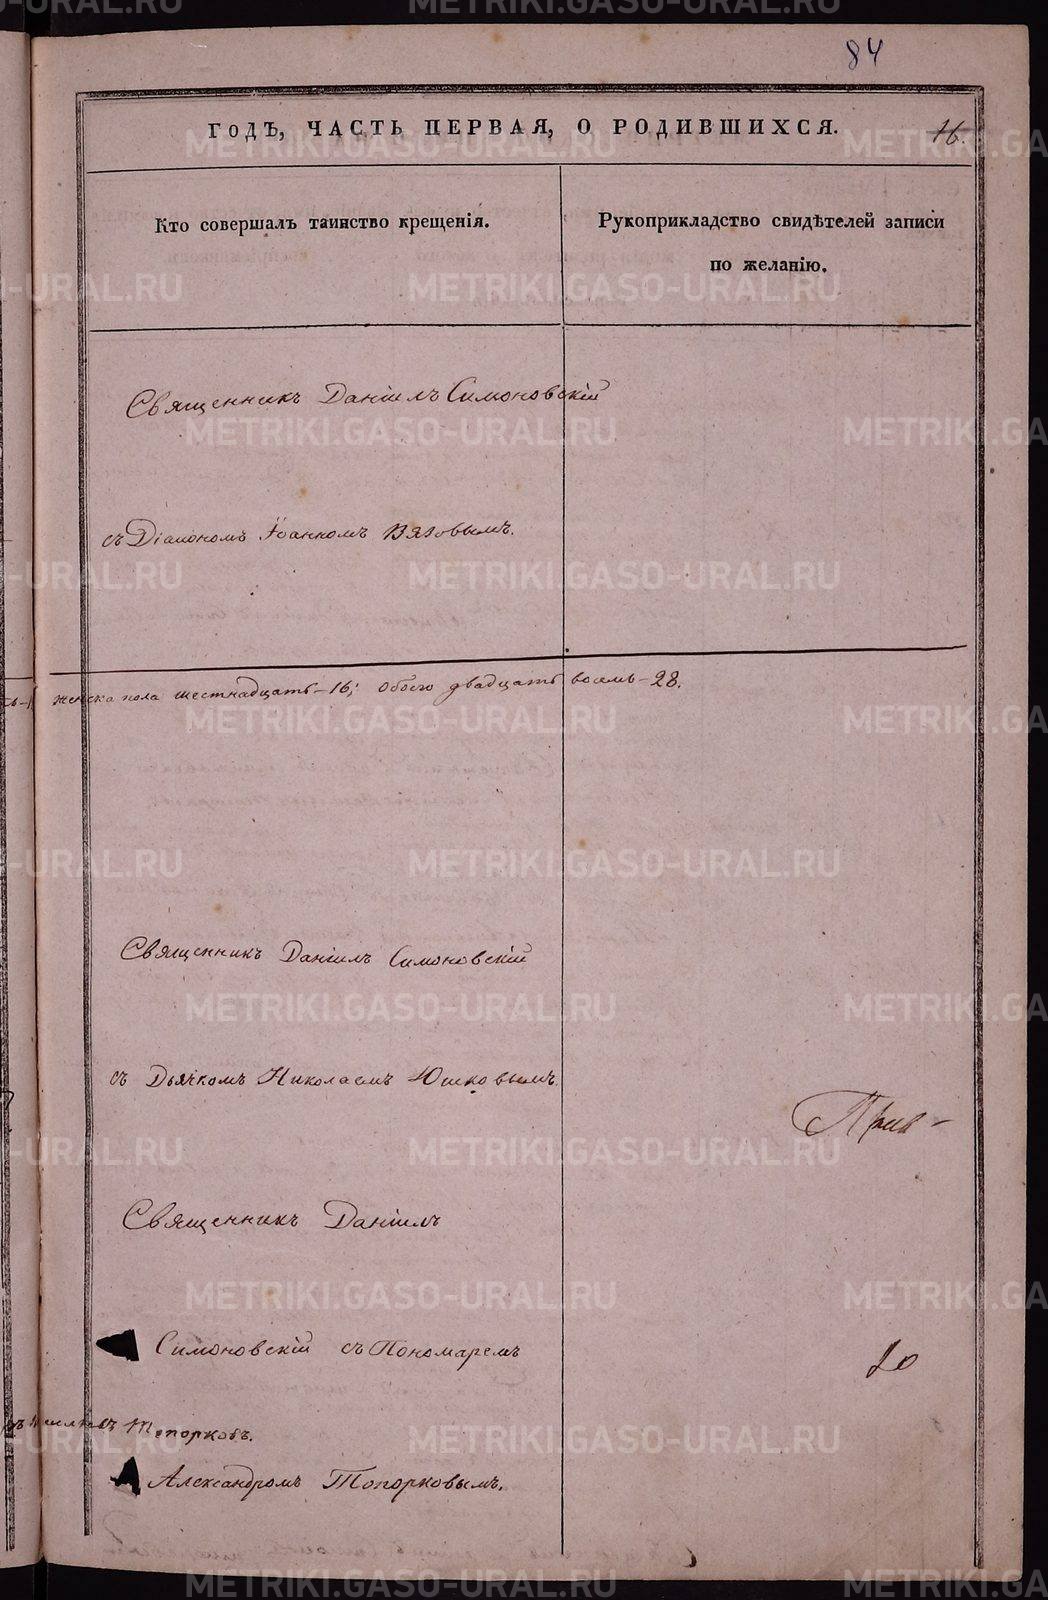 84
ГОДЪ, ЧАСТЬ ПЕРВАЯ, О РОДИВШИХСЯ.
16.
Кто совершалъ таинство крещенія.
Рукоприкладство свидѣтелей записи
по желанію.
Священникъ Даніилъ Симоновскій
съ Діакономъ Іоанномъ Вяговымъ.
женска пола шестнадцать – 16; обоего двадцать восемь – 28.
Священникъ Даніилъ Симоновскій
съ Дьячкомъ Николаемъ Юшковымъ.
Священникъ Даніилъ
Симоновскій съ Пономаремъ
Топорковъ.
Александромъ Топорковымъ.
METRIKI.GASO-URAL.RU